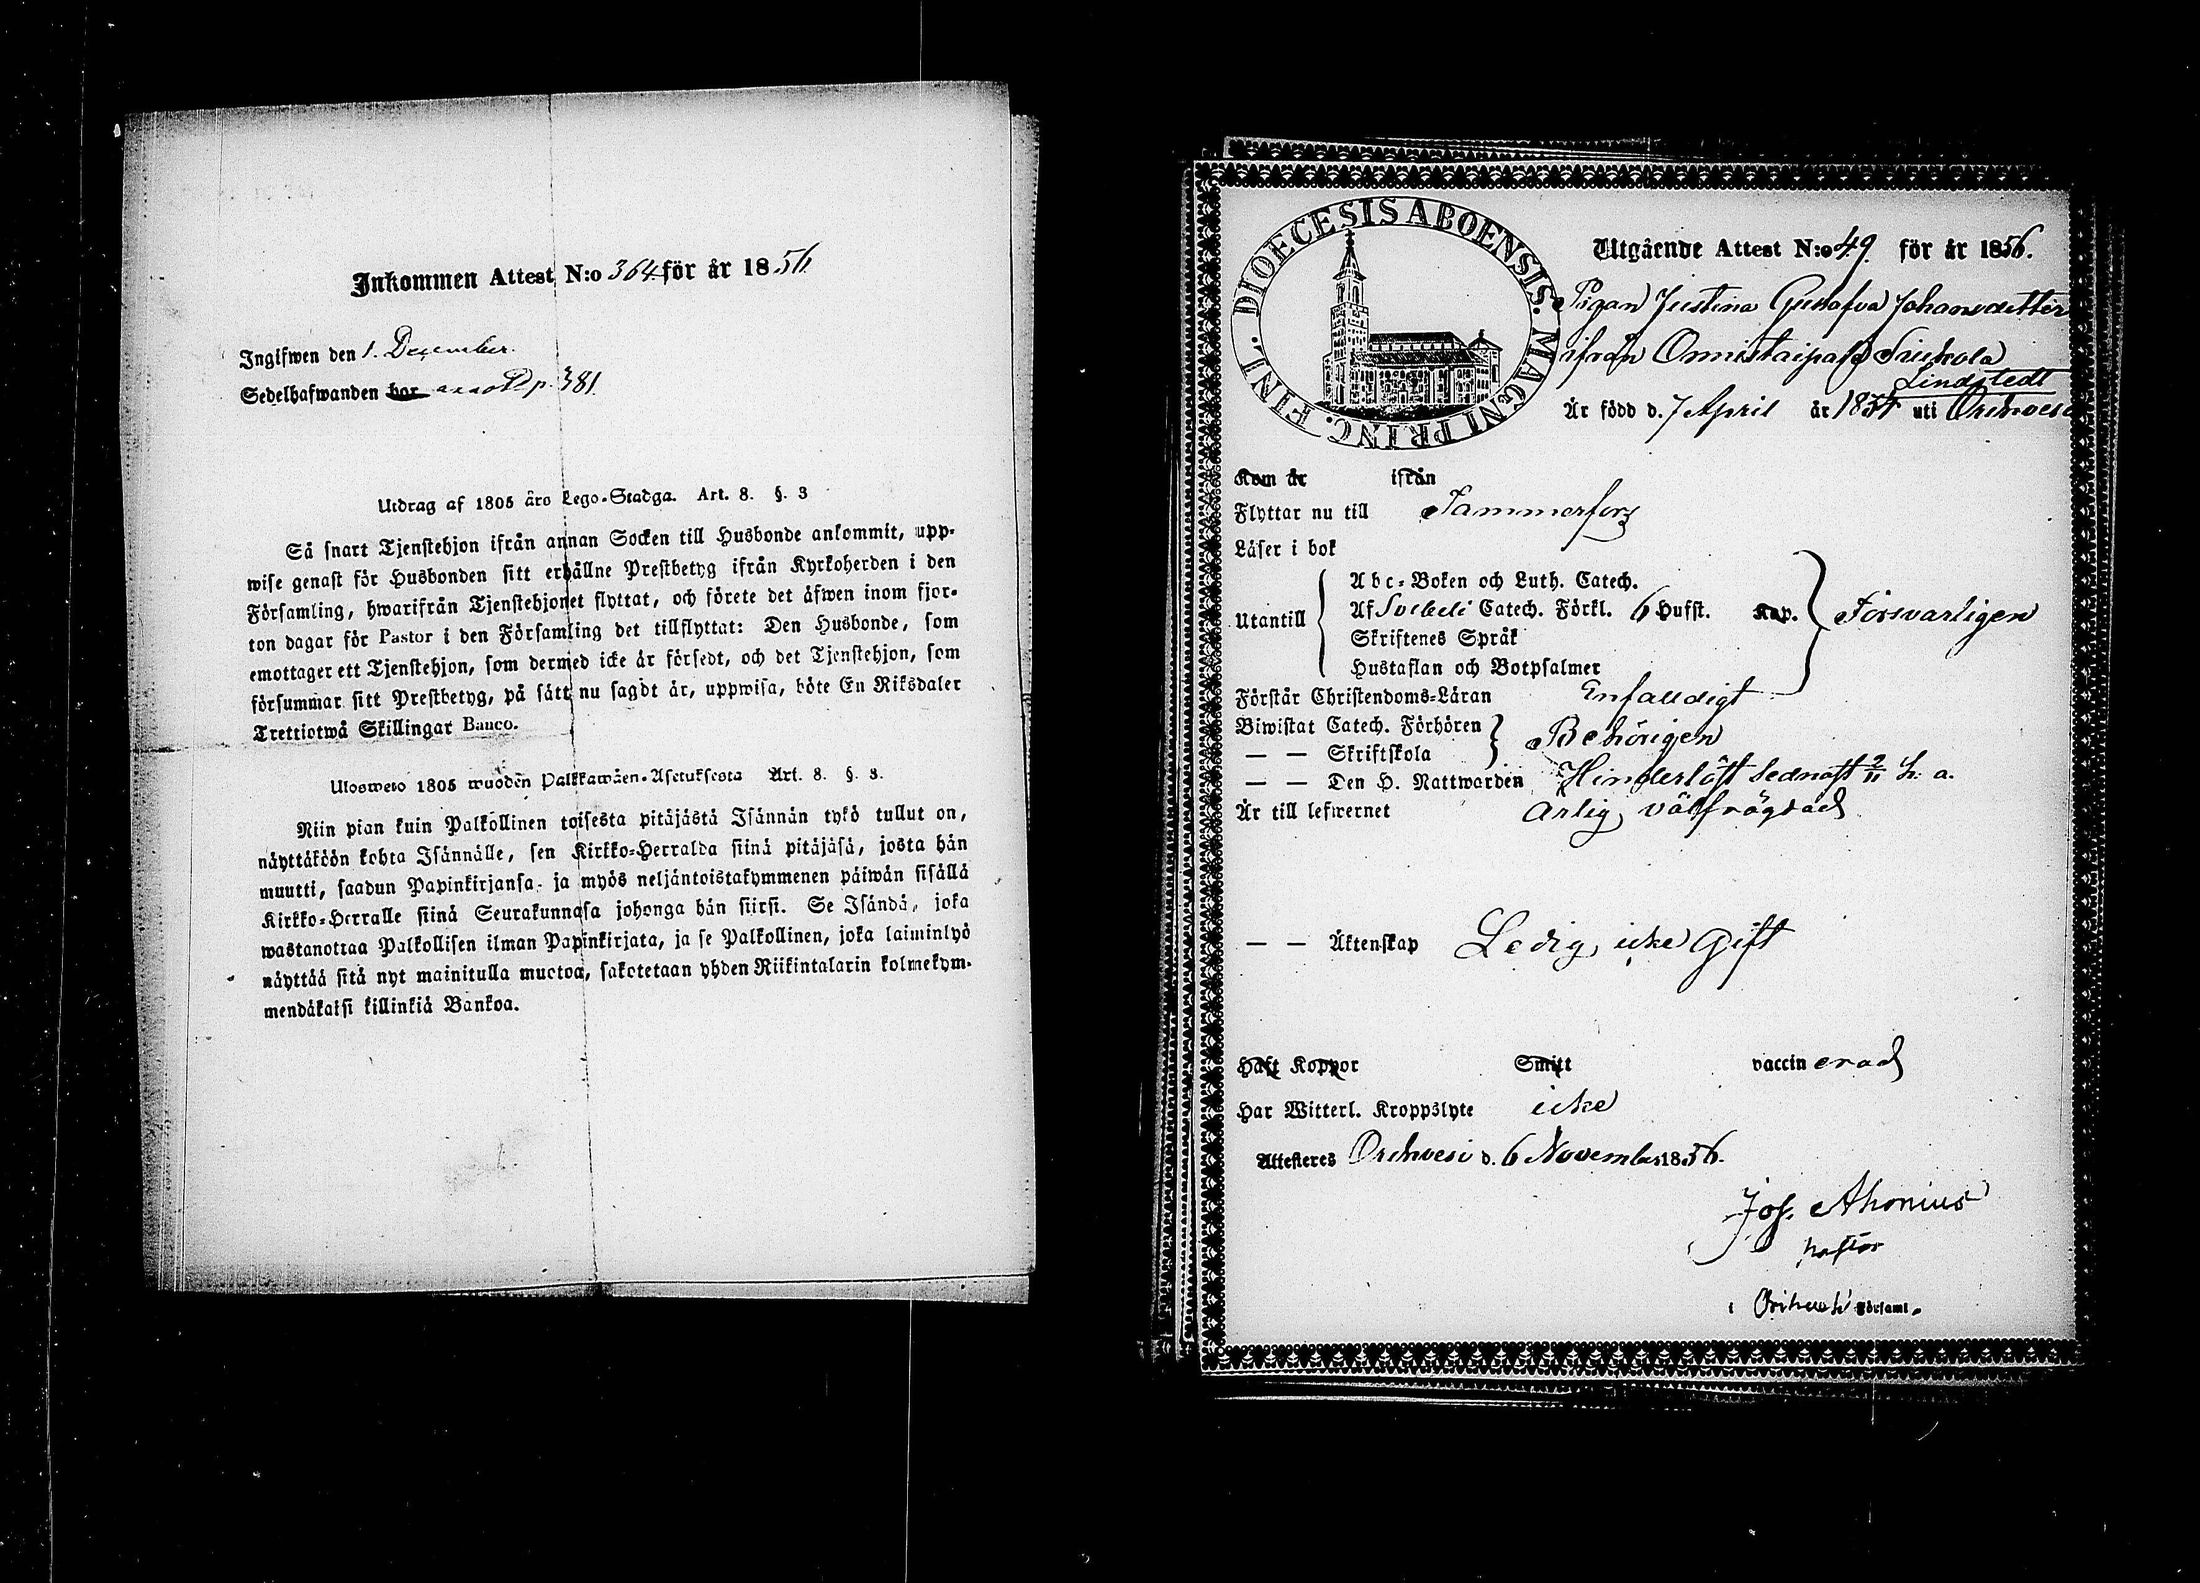 Inkommen Attest N:o 364 för år 1856
Ingifwen den 1. December.
Sedelhafwanden har p. 381
Utdrag af 1805 års Lego-Stadga. Art. 8. §. 3
Så snart Tjenstehjon ifrån annan Socken till Husbonde ankommit, upp-
wise genast för Husbonden sitt erhållne Prestbetyg ifrån Kyrkoherden i den
Församling, hwarifrån Tjenstehjonet flyttat, och förete det äfwen inom fjor-
ton dagar för Pastor i den Församling det tillflyttat: Den Husbonde, som
emottager ett Tjenstehjon, som dermed icke är försedt, och det Tjenstehjon, som
försummar sitt Prestbetyg, på sätt nu sagdt är, uppwisa, böte En Riksdaler
Trettiotwå Skillingar Banco.
Ulosweto 1805 wuoden Palkkawäen-Asetuksesta Art. 8. §. 3.
Niin pian kuin Palkollinen toisesta pitäjästä Isännän tykö tullut on,
näyttäköön kohta Isännälle, sen Kirkko-Herralda siinä pitäjäsä, josta hän
muutti, saadun Papinkirjansa, ja myös neljäntoistakymmenen päiwän sisällä
Kirkko-Herralle siinä Seurakunnasa johonga hän siirsi. Se Isändä, joka
wastanottaa Palkollisen ilman Papinkirjata, ja se Palkollinen, joka laiminlyö
näyttää sitä nyt mainitulla muotoa, sakotetaan yhden Riikintalarin kolmekym-
mendäkaksi killinkiä Bankoa.
DIOECESIS ABOENSIS. MAGNI PRINC. FINL.
Utgående Attest N:o 49 för år 1856.
Pigan Justina Gustafva Johansdotter
ifrån Onnistaipale
Lindstedt
Är född d. 7 April år 1834 uti Orihvesi
Kom år ifrån
Flyttar nu till Tammerfors
Läser i bok
Utantill
Abc-Boken och Luth. Catech.
Af Svebeli Catech. Förkl. 6 Hufst. Kap. Försvarligen
Skriftenes Språk
Hustaflan och Botpsalmer
Förstår Christendoms-Läran Enfaldigt
Biwistat Catech. Förhören
— — Skriftskola Behörigen
— — Den H. Nattwarden Hinderlöst sednast 2/11 h. a.
Är till lefwernet Ärlig, välfrägdad
— — Äktenskap Ledig, icke gift
Haft Koppor Smitt vaccinerad
Har Witterl. Kroppslyte icke
Attesteras Orihvesi d. 6 November 1856.
Jos. Ahonius
Pastor
i Orihvesi Församl.